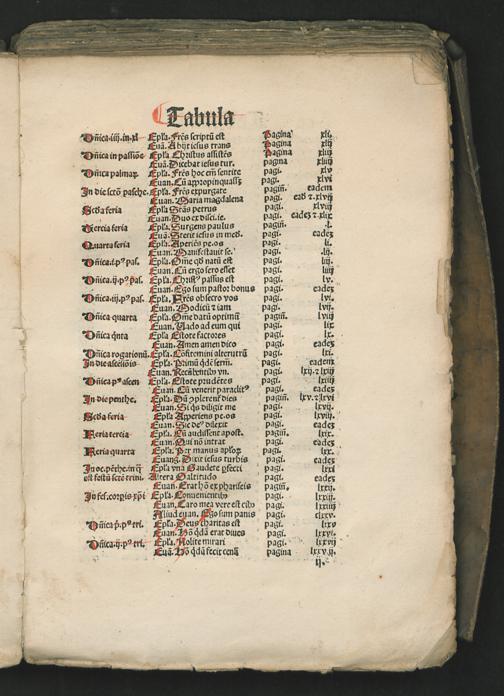 Tabula
Dñica.iiij.in.xl Epła. Frẽs scriptũ est Pagina xli.
Euã. Abijt iesus trans Pagina xlij
Dñica in passiõe Epła. Christus assistẽs Pagina xliij
Euã. Dicebat iesus tur. pagina xliiij
Dñica palmaꝝ. Epła. Frẽs hoc em̃ sentite pagi. xlv
Euan. Cũ appropinquass; pagi. xlvi
In die scõ pasche. Epła. Frẽs expurgate pagiñ. eadem
Euan. Maria magdalena pagi. ead̃ ⁊.xlvij
Scđa feria Epła. Stãs petrus pagi. xlviij
Euan. Duo ex disci. ie. pagi. eadeʒ ⁊ xlix
Tercia feria Epła. Surgens paulus pagiñ. .l.
Euã. Stetit iesus in med. pagi. eadeʒ
Quarta feria Epła. Aperiẽs pe.os pagi. li.
Euan. Manifestauit se. pagi. .lij.
Dñica.i.p⁹ pas. Epła. Om̃e qđ natũ est pagi. liij.
Euan. Cũ ergo sero esset pagi. liiij
Dñica.ij.p⁹ pas. Epła. Christ⁹ passus est pagi. lv.
Euan. Ego sum pastor bonus pagi. eadeʒ
Dñica.iij.p⁹ pas. Epła. Frẽs obsecro vos pagi. lvi.
Euan. Modicũ ⁊ iam pagi. lvij.
Dñica quarta Epła. Om̃e datũ optimũ pagiñ. lviij
Euan. Uado ad eum qui pagi. lix.
Dñica q̃nta Epła. Estote factores pagi. lx.
Euan. Amen amen dico pagi. eadeʒ
Dñica rogationũ. Epła. Cõfitemini alterutrũ pagi. lxi.
In die ascẽsiõis Epła. Primũ qdẽ serm̃. pagi. eadem
Euan. Recũbentibꝰ vn. pagi. lxij.⁊ lxiij
Dñica p⁹ ascen Epła. Estote prudẽtes pagi. lxiiij
Euan. Cũ venerit paraclit⁹ pagi. eadeʒ
In die penthe. Epła. Dũ ꝯplerent̃ dies pagiñ. lxv.⁊ lxvi
Euan. Si qs diligit me pagi. lxvij.
Scđa feria Epła. Apperiens pe.os pagi. lxviij
Euan. Sic de⁹ dilexit pagi. eadeʒ
Feria tercia Epła. Cũ audissent apost. pagiñ. lxix.
Euan. Qui nõ intrat pagi. eadeʒ
Feria quarta Epła. Per manus apłoꝝ pagi. lxx.
Euang. Dixit iesus turbis pagi. eadeʒ
In oc.pẽthe.in q̃ Epła vna Gaudete pfecti pagi. lxxi.
est festũ scẽe trini. Altera O altitudo pagi. eadeʒ
Euan. Erat hõ ex phariseis pagiñ. lxxij.
In fes.corpis xp̃i Epła. Conuenientibꝰ pagi. lxxiij.
Euan. Caro mea vere est cibꝰ pagi. lxxiiij
Aliud euan. Ego sum panis pagi.
Dñica p̃.p⁹ tri. Epła. Deus charitas est pagi.
Euan. Hõ qdã erat diues pagi. lxxvi.
Dñica.ij.p⁹ tri. Epła. Nolite mirari pagi. lxxvij
Euã. Hõ qdã fecit cenã pagina
ij.